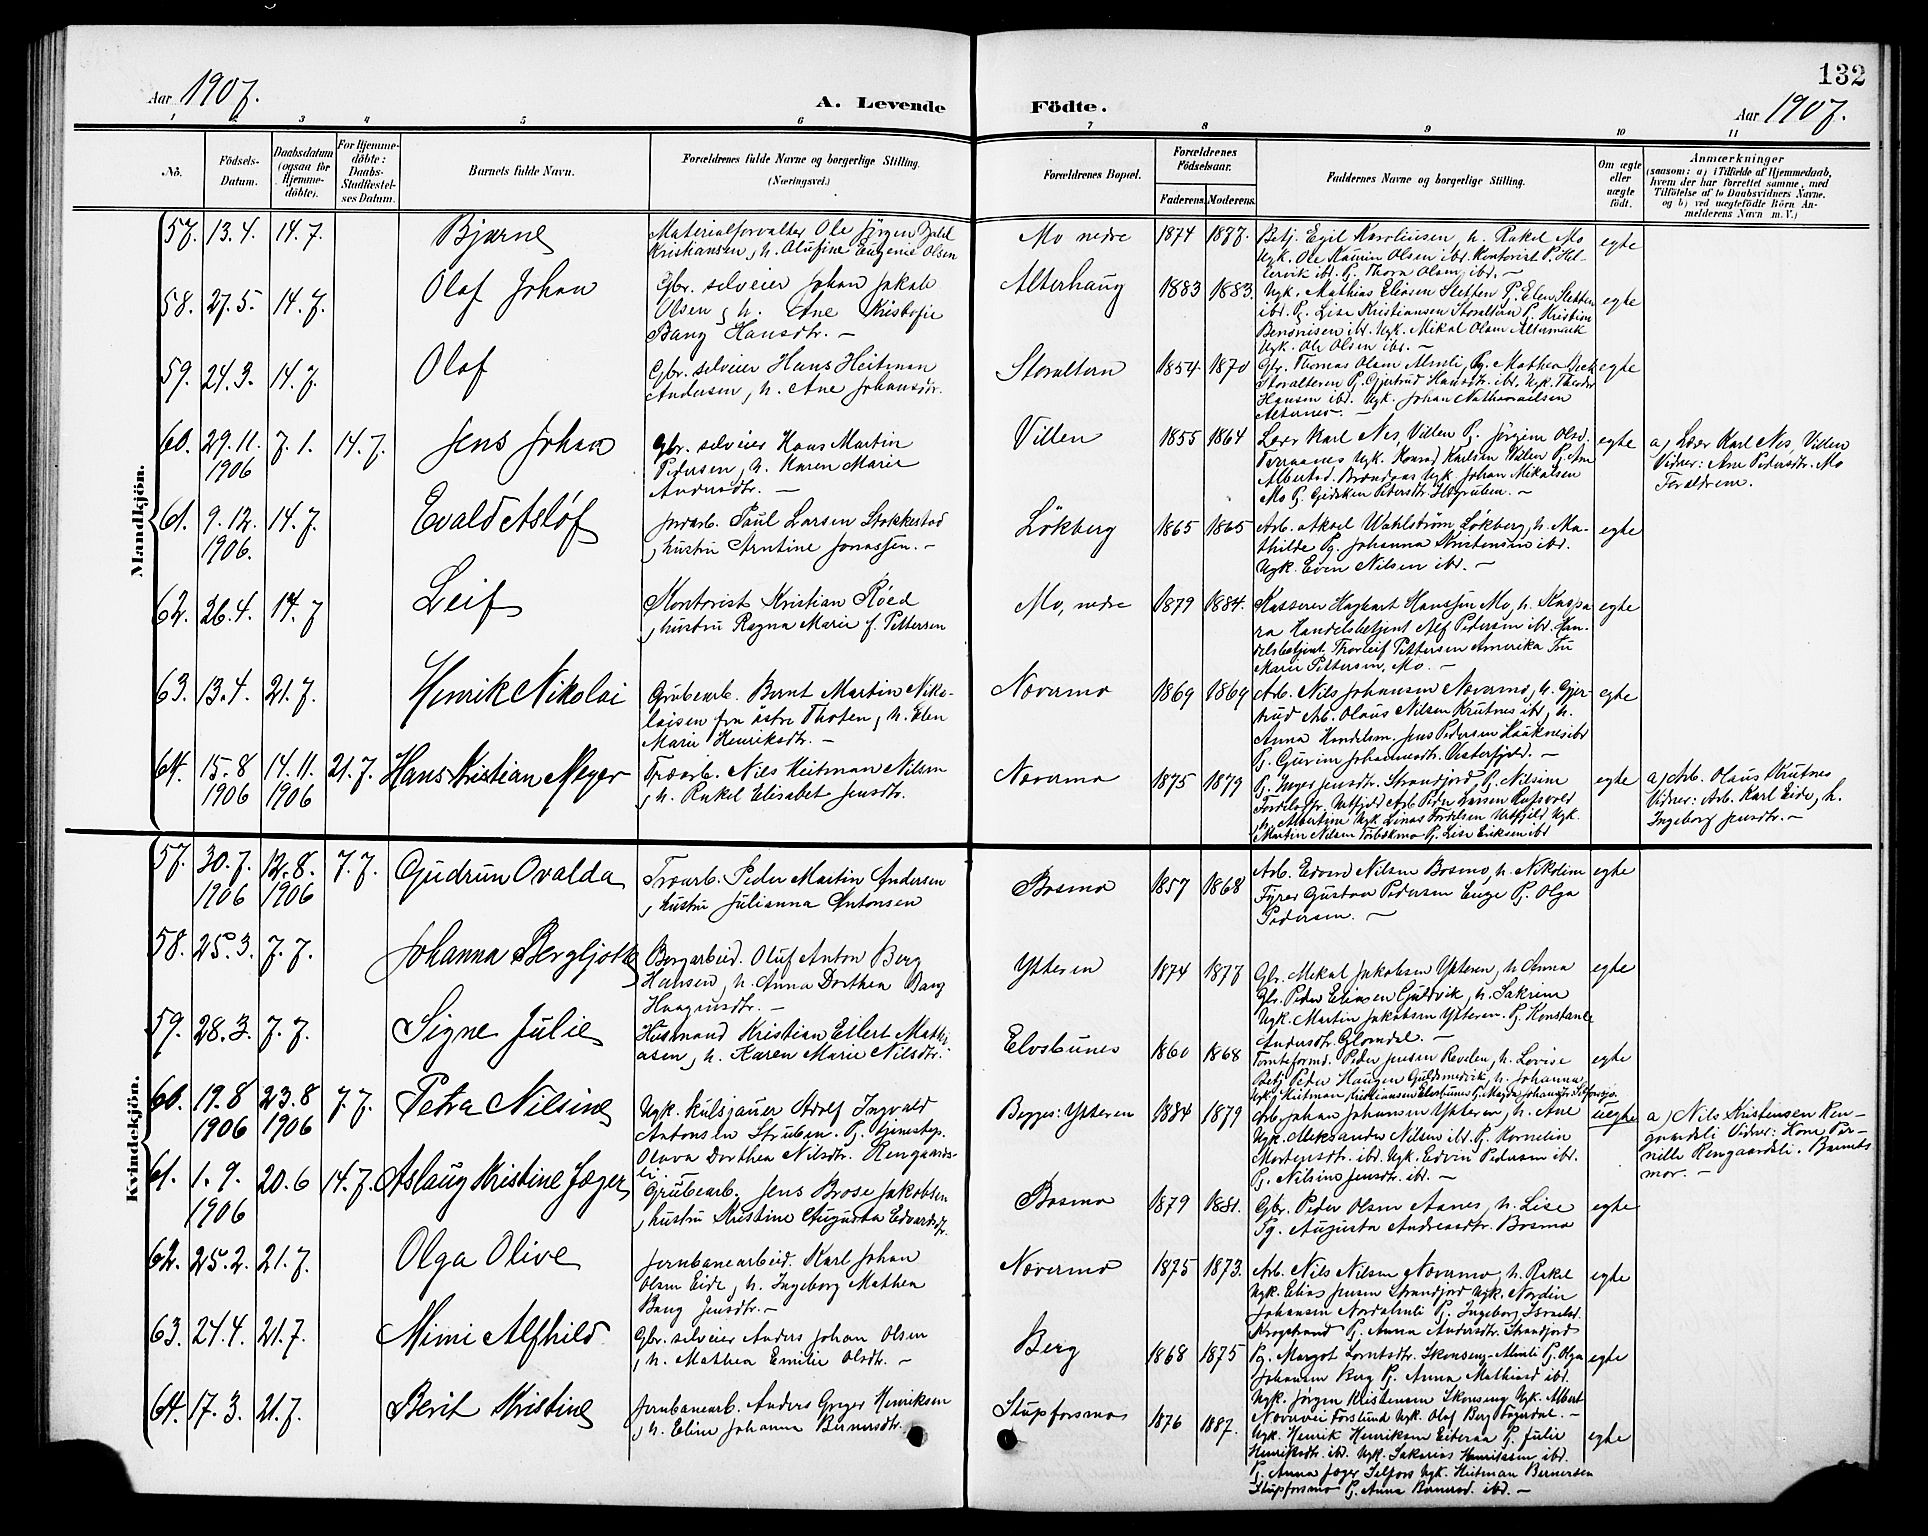 132
Aar 1907.
A. Levende
Födte.
Aar 1907.
1 2 3 4 5 6 7 8 9 10 11
No.
Födsels-
Datum.
Daabsdatum
(ogsaa for
Hjemme-
döbte).
For Hjemme-
döbte:
Daabs-
Stadfæstel-
ses Datum.
Barnets fulde Navn.
Forældrenes fulde Navne og borgerlige Stilling.
(Næringsvei.)
Forældrenes Bopæl.
Forældrenes
Födselsaar.
Faderens. Moderens.
Faddernes Navne og borgerlige Stilling.
Om ægte
eller
uægte
födt.
Anmærkninger
(saasom: a) i Tilfælde af Hjemmedaab,
hvem der har forrettet samme, med
Tilföielse af to Daabsvidners Navne.
og b) ved uægtefödte Börn An-
melderens Navn m. V.)
Mandkjön.
57. 13.4. 14.7. Bjarne
Materialforvalter Ole Jörgen
Kristiansen, h. Olufine Eugenie Olsen
Mo nedre 1874 1877.
Betj. Egil Karoliussen, h. Rakel Mo
Ugk. Ole Kaurin Olsen ibr. Kontorist P. Hel-
lervik ibr. P. Thora Olsen ibr. —
egte
58. 27.5. 14.7. Olaf Johan
Gbr. selveier Johan Jakob
Olsen, h. Ane Kristofie
Bang Hansdtr. —
Alterhaug 1883 1883.
Ugk. Mathias Eliasen Sletten P. Elen Sletten
ibr. Pg. Lise Kristiansen Storaltern P. Kristine
ibr. Ugk. Mikal Olsen Altermark
Ugk. Ole Olsen ibr. —
egte
59. 24.3. 14.7. Olaf
Gbr. selveier Hans Heitman
Andersen, h. Ane Johansdtr.
Storaltern 1854 1870
Gbr. Thomas Olsen Almli, Pg. Mathea
Storalteren P. Gjertrud Hansdtr. ibr. Ugk. Theodor
Hansen ibr. Ugk. Johan Nathanaelsen
Alternes. —
egte
60. 29.11. 1906 7.1. 14.7. Jens Johan
Gbr. selveier Hans Martin
Pedersen, h. Karen Marie
Andersdtr. —
Villen 1855 1864
Lærer Karl Nes, Villen P. Jörgine Olsd.
Terraanes Ugk. Konrad Karlsen Villen P. Ane
Albertsd. Brændaas Ugk. Johan Mikalsen
Mo P. Gidsken Pedersdtr. —
egte
a) Lærer Karl Nes, Villen
Vidner: Ane Pedersdtr. Mo
Forældrene.
61. 9.12. 1906. 14.7. Evald Asløf
Jordarb. Paul Larsen Stokkestad
, hustru Arntine Jonassen. —
Lökberg 1865 1865
Arb. Aksel Wahlström Lökberg, h. Ma-
thilde Pg. Johanna Kristensen ibr.
Ugk. Even Nilsen ibr. —
egte
62. 26.4. 14.7 Leif
Kontorist Kristian Röed
, hustru Ragna Marie f. Pettersen
Mo, nedre 1879 1884.
Kasserer Hagbart Hanssen Mo, h. Kaspa-
ra Handelsbetjent Alf Pedersen ibr. Han-
delsbetjent Thorleif Pettersen Amerika Fru
Marie Pettersen, Mo. —
egte
63. 13.4. 21.7. Henrik Nikolai
Grubearb. Bernt Martin Niko-
laisen fra östre Thoten, h. Elen
Marie Henriksdtr. —
Nævermo 1869 1869
Arb. Nils Johansen Nævermo, h. Gjer-
trud Arb. Olaus Nilsen Krutnes ibr, h.
Anna Jens Pedersen ibr
P. Gurine Johannesdtr. Vesterfjeld. —
egte
64. 15.8 1906 14.11. 1906 21.7. Hans Kristian Meyer
Træarb. Nils Heitman Nilsen
, h. Rakel Elisabet Jensdtr.
Nævermo 1875 1879
P. Inger Jensdtr. Strandjord P. Nilsine
Arb. Peder Larsen
h. Albertine Ugk. Linas
Martin Nilsen Pg. Lise Eriksen ibr
egte
a) Arb. Olaus Krutnes
Vidner: Arb. Karl Eide, h.
Ingeborg Jensdtr. —
Kvindekjön.
57. 30.7. 1906 12.8. 1906 7.7. Gudrun Ovalda
Træarb. Peder Martin Andersen
, hustru Julianna Antonsen
Bosmo 1857 1868
Arb. Edvard Nilsen Bosmo, h. Nikoline
Fyrer Gustav Pedersen Enge P. Olga
Pedersen. —
egte
58. 25.3. 7.7. Johanna Bergljotte
Bergarbeid. Oluf Anton Berg
Hansen, h. Anna Dorthea Bang
Haagensdtr. —
Ytteren 1874 1877
Gbr. Mikal Jakobsen Ytteren, h. Anna
Gbr. Peder Eliasen Guldvik, h. Sakrine
Ugk. Martin Jakobsen Ytteren. P. Konstanse
Andersdtr. Glomdal. —
egte
59. 28.3. 7.7. Signe Julie
Husmand Kristian Eilert Mathi-
asen, h. Karen Marie Nilsdtr.
Elvsbunes 1860 1868
Tomteformd. Peder Jensen Revelen, h. Lovise
Betj. Peder Haugen Guldsmedvik, h. Johanna
egte
60. 19.8 1906 23.8 1906 7.7. Petra Nilsine
Ugk. kulsjauer Adolf Ingvald
Antonsen Struben. P. tjenestep.
Olava Dorthea Nilsdtr. Rengaards-
li
Ytteren 1884 1879
Arb. Johan Johansen Ytteren, h. Ane
Ugk. Aleksander Nilsen ibr. P. Kornelia
Mortensdtr. ibr. Ugk. Edvin Pedersen ibr.
P. Nilsine Jensdtr. ibr. —
uegte
a) Nils Kristensen Ren-
gaardsli Vidner: Kone Per-
nille Rengaardsli. Barnets
mor. —
61. 1.9. 1906 20.6 14.7. Aslaug Kristine Jæger
Grubearb. Jens Brose Jakobsen
, hustru Kristine Augusta Edvardsdtr.
Bosmo 1879 1881.
Gbr. Peder Olsen Aanes, h. Lise
Pg. Augusta Andreasdtr. Bosmo
egte
62. 25.2. 21.7. Olga Olive
Jernbanearbeid. Karl Johan
Olsen Eide, h. Ingeborg Mathea
Bang Jensdtr. —
Nævermo 1875 1873.
Arb. Nils Nilsen Nævermo, h. Rakel
Ugk. Elias Jensen Strandjord Ugk. Nordin
Johansen P. Ingeborg Israelsd.
Krogstrand P. Anna Andersdtr. Strandjord
egte
63. 24.4. 21.7. Mimi Alfhild
Gbr. selveier Anders Johan Olsen
, h. Mathea Emilie Olsdtr. —
Berg 1868 1875
Pg. Margot Lorntsdtr. Skonseng-Almli P. Olga
Johansen Berg P. Anna Mathiasd ibr.
Ugk. Jörgen Kristensen Skonseng Ugk. Albert
Forslund Ugk. Olaf Berg Fagerdal. —
egte
64. 17.3. 21.7. Berit Kristine
Jernbanearb. Anders Greger Henriksen
, h. Eline Johanna Bernersdtr.
Stupforsmo 1876 1887.
Ugk. Henrik Henriksen Eiteraa P. Julie
Henriksdtr. ibr. Ugk. Sakarias Henriksen ibr.
P. Anna Jæger Selfors Ugk. Heitman Bernersen
Stupforsmo P. Anna Bernersd. ibr. —
egte